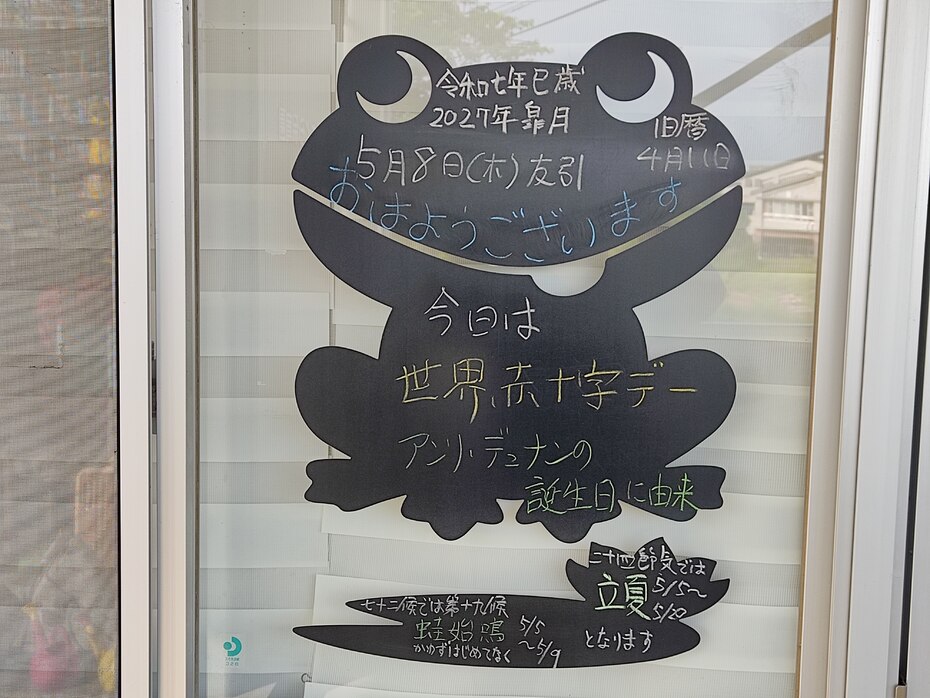 令和七年巳歳
2027年皐月
旧暦
4月11日
5月8日(木)友引
おはようございます
今日は
世界赤十字デー
アンリ・デュナンの
誕生日に由来
二十四節気では
立夏 5/5～
5/20
となります
七十二候では第十九候
蛙始鳴 5/5
～5/9
かわずはじめてなく